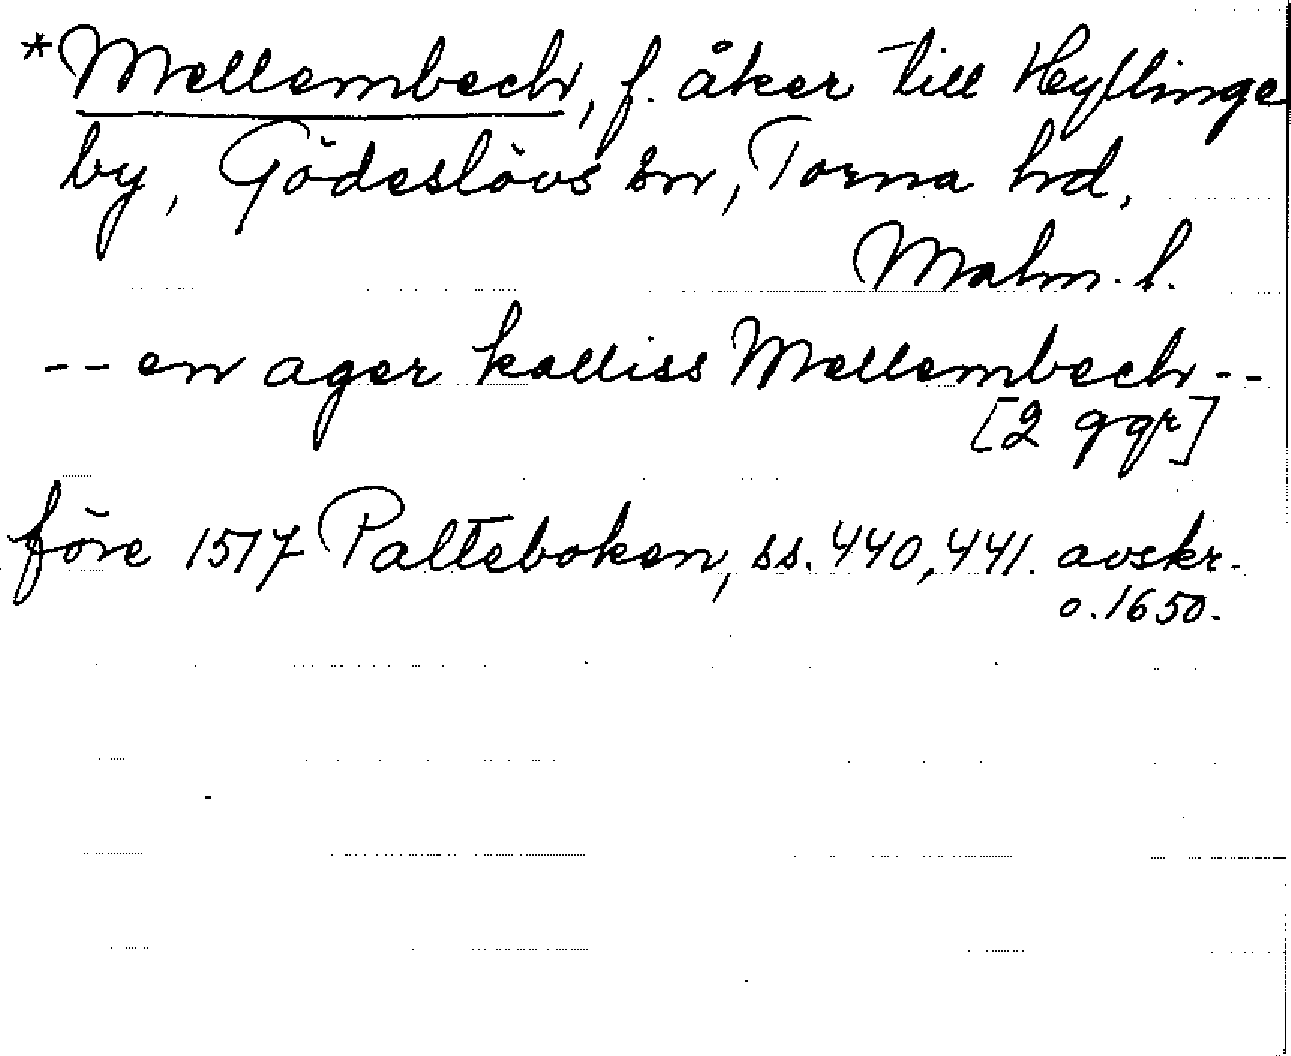 *Mellembech, f. åker till Heyslinge
by, Gödeslövs sn, Torna hd,
Malm. l.
-- en ager kalliss Mellembech --
[2 ggr]
före 1517 Palteboken, ss. 440, 441. avskr.
o. 1650.